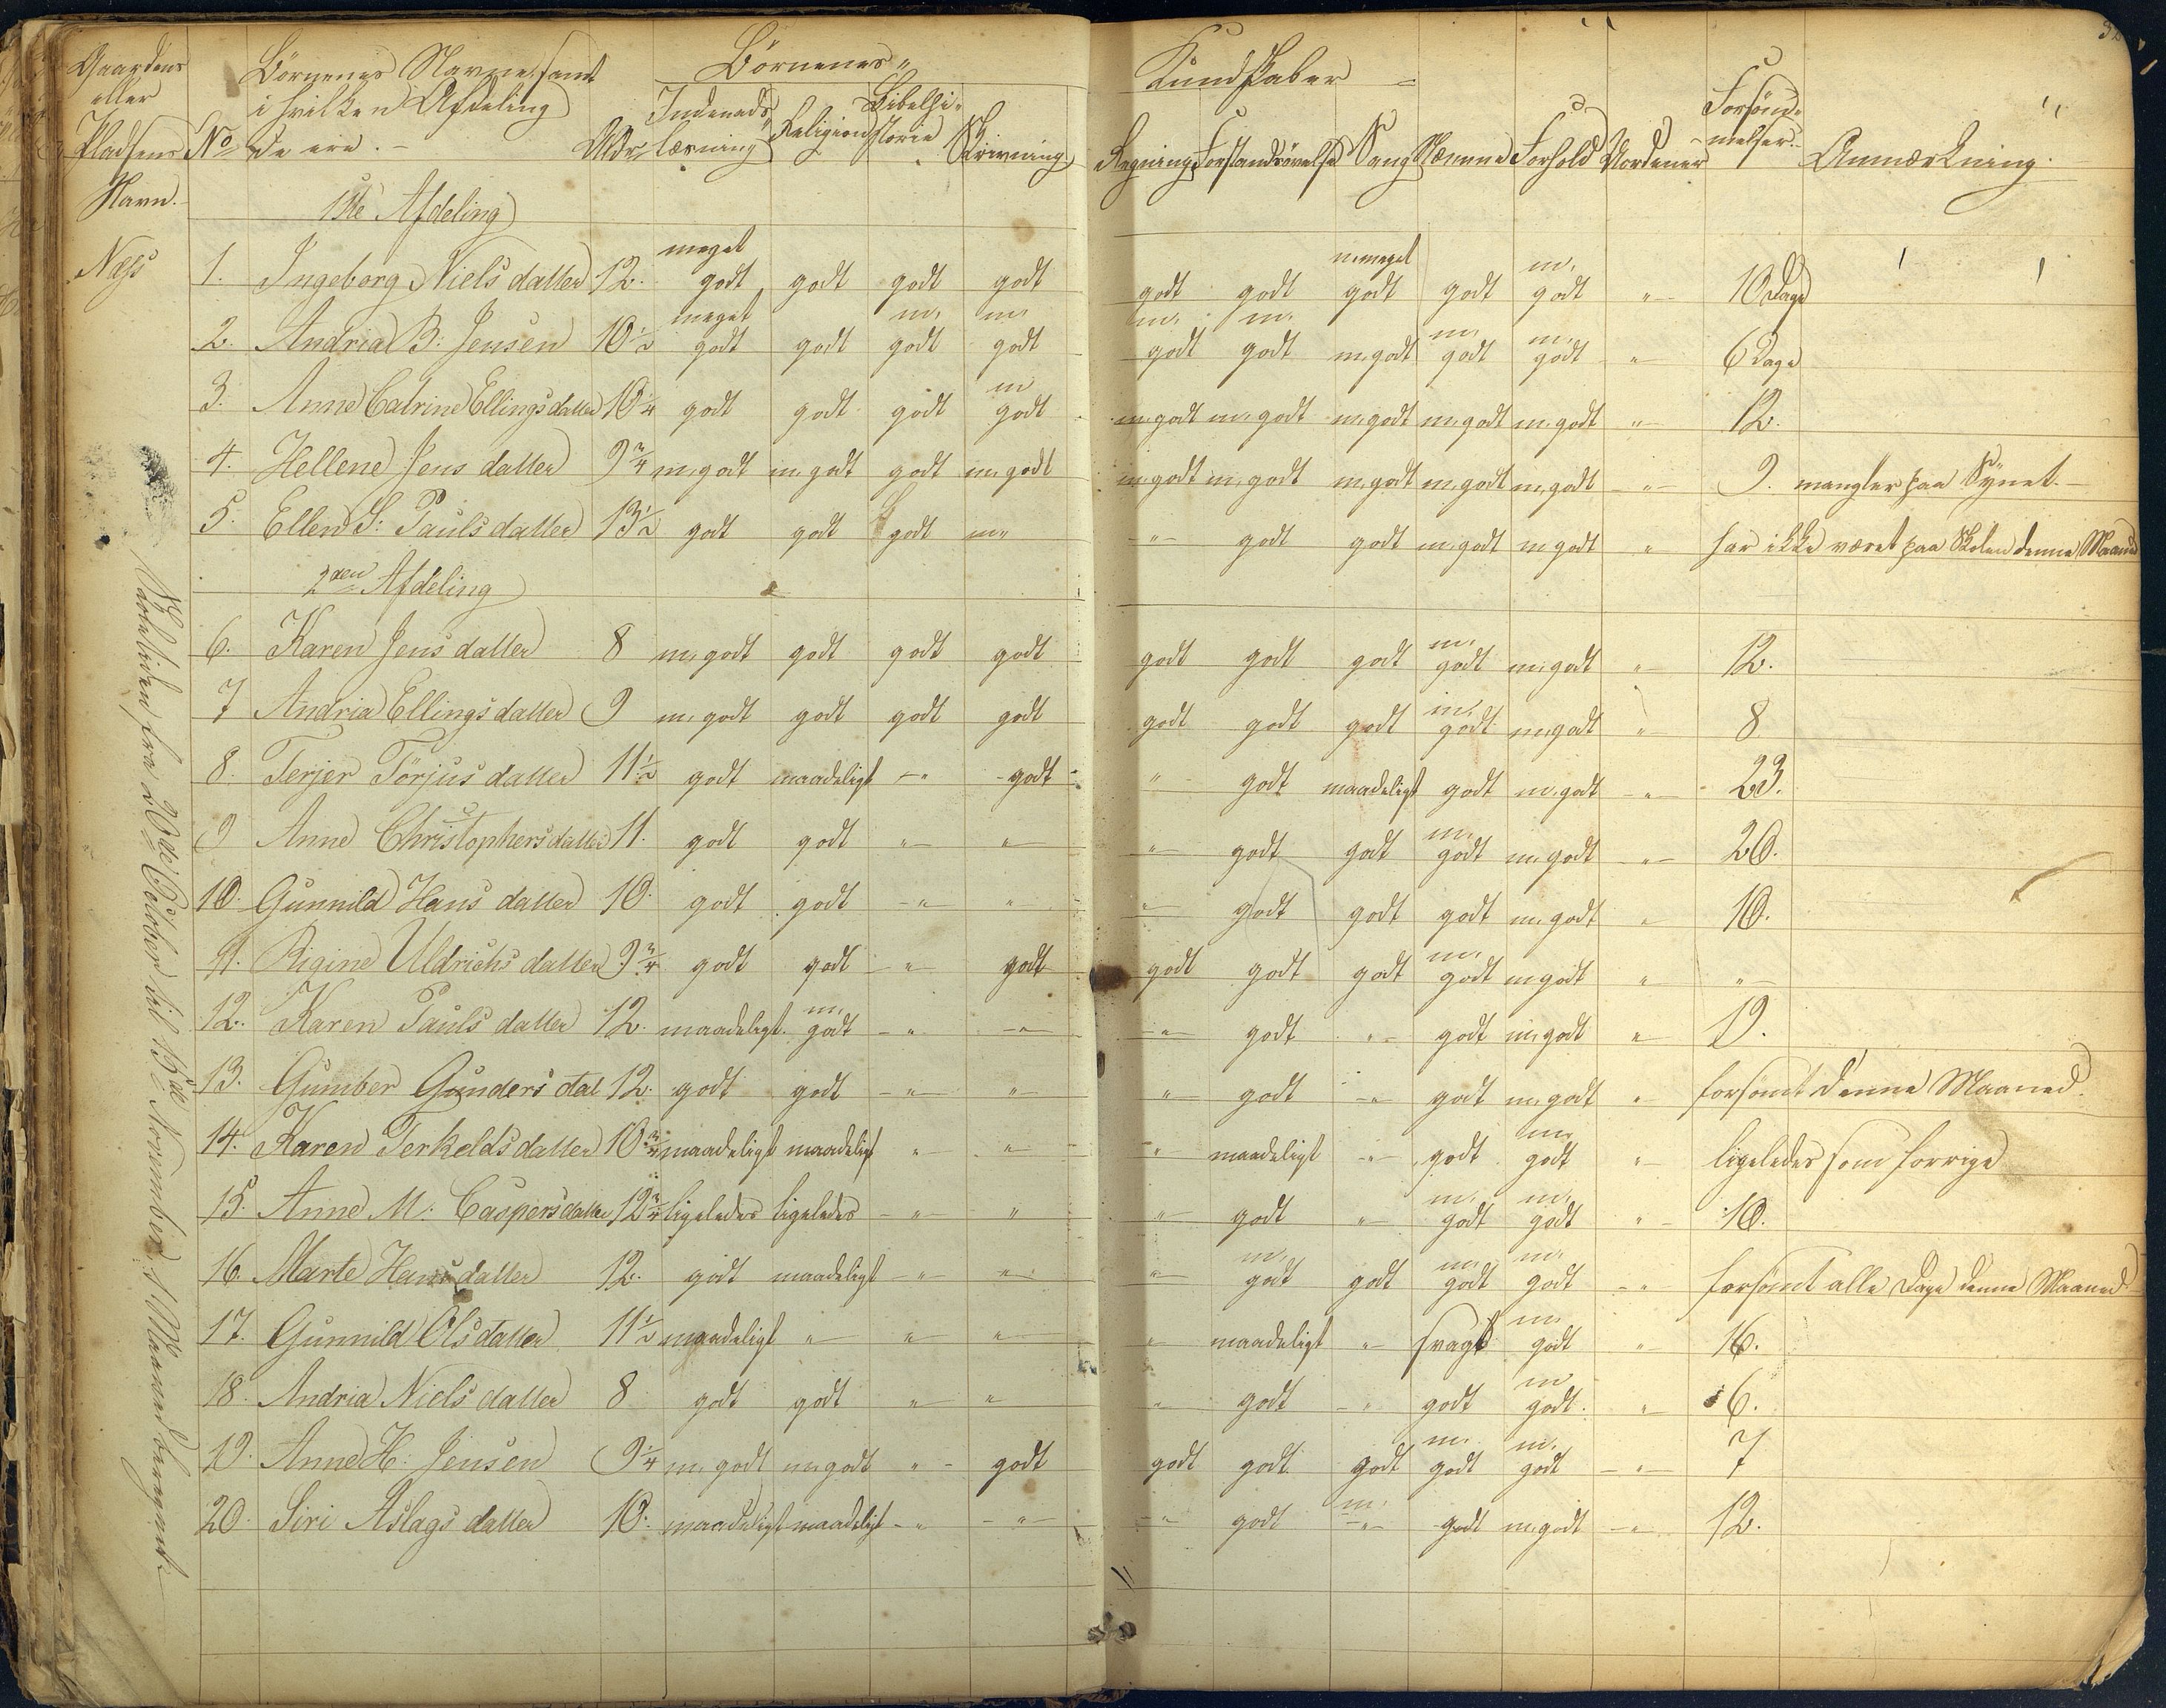 Gaardens eller Pladsens Navn. No Börnenes Navne, samt i hvilken Afdeling de ere. - Alder Börnenes " Kundskaber =
Indenads læsning Religion Bibelhistorie Skrivning Regning Forstandsövelse Sang Nemme Forhold Forsömmelser. Anmærkning.
1ste Afdeling
Næss 1. Ingeborg Nielsdatter 12. meget godt godt godt godt godt godt meget godt godt m. godt " 10 Dage
2. Andria B: Jensen 10½ meget godt godt m. godt m. godt m. godt m. godt m. godt m. godt m. godt " 6 Dage
3. Anne Catrine Ellingsdatter 10¼ godt godt godt m godt m. godt m. godt m. godt m. godt m. godt " 12.
4. Hellene Jensdatter 9¾ m. godt m. godt godt m. godt m. godt m. godt m. godt m. godt m. godt " 9. mangler paa Synet. -
5. Ellen S: Paulsdatter 13½ godt godt godt m " " godt godt m. godt m godt " har ikke været paa Skolen denne Maaned
2den Afdeling
6. Karen Jensdatter 8 m. godt godt godt godt godt godt godt m. godt m. godt " 12.
7 Andria Ellingsdatter 9 m. godt godt godt godt godt godt godt m. godt m. godt " 8
8. Terjer Törjusdatter 11½ godt maadeligt " godt " godt maadeligt godt m. godt " 23.
9 Anne Christophersdatter 11. godt godt " " " godt godt m. godt m. godt " 20.
10. Gunnild Hansdatter 10. godt godt " " " godt godt godt m. godt " 10.
11. Rigine Uldrichsdatter 9¾ godt godt " godt godt godt godt m. godt m. godt " "
12. Karen Paulsdatter 12. maadeligt m. godt " " " godt " godt m. godt " 19.
13. Gumber Gundersdat 12. godt godt " " " godt " godt m. godt " forsömt denne Maaned.
14. Karen Terkeldsdatter 10¾ maadeligt maadeligt " " " maadeligt " godt m. godt " ligeledes som forrige
15. Anne M: Caspersdatter 12¾ ligeledes ligeledes " " " godt " m. godt m. godt " 10.
16. Marte Hansdatter 12. godt maadeligt " " " m. godt godt m. godt m. godt " forsömt alle Dage denne Maaned
17. Gunnild Olsdatter 11½ maadeligt " " " " maadeligt " svagt m. godt " 16.
18. Andria Nielsdatter 8 godt godt " " " godt " godt m godt. " 6.
19. Anne H: Jensen 9¼ m. godt m. godt " godt godt godt godt m. godt m. godt " 7
20. Siri Aslagsdatter 10. maadeligt maadeligt " " " godt m. " godt m. godt " 12.
Skoletiden fra 20de October til 13de November, 1 Maaned beregnet. -